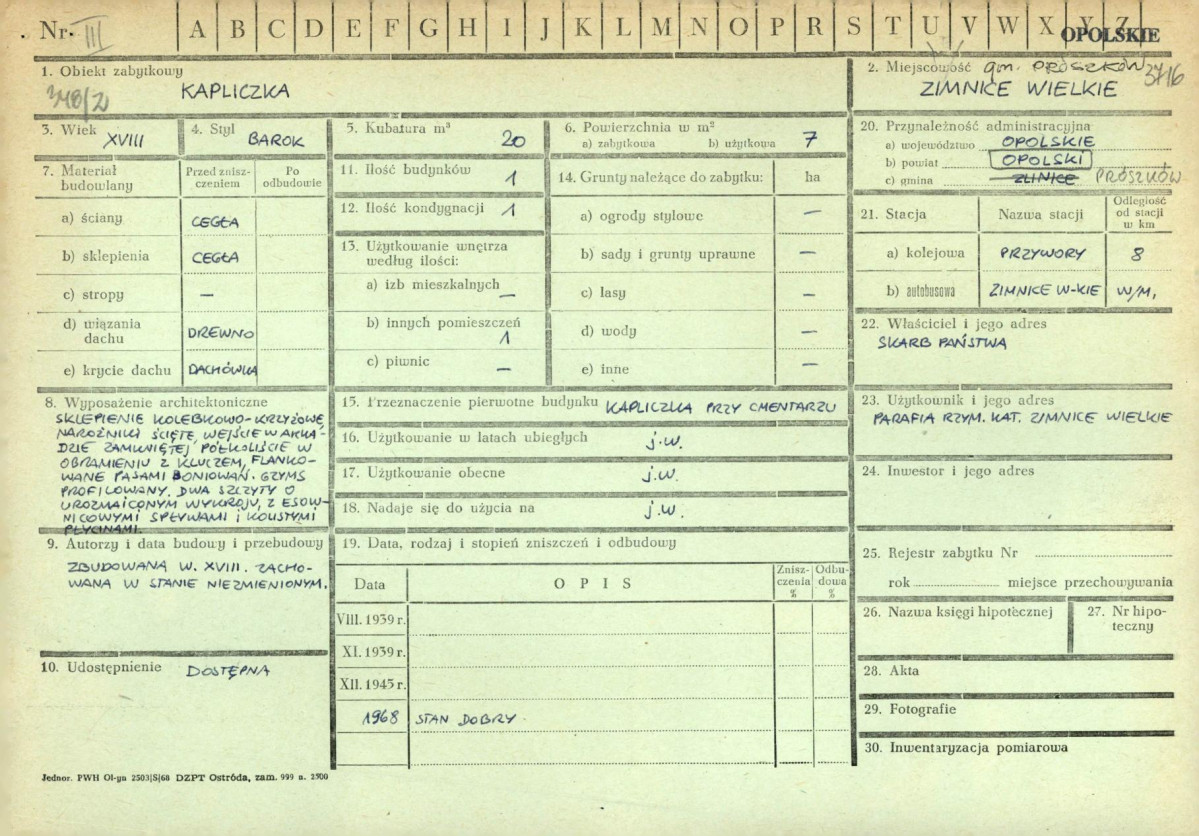 Nr. III A B C D E F G H I J K L M N O P R S T U V W X Y Z OPOLSKIE
1. Obiekt zabytkowy
348/2 KAPLICZKA
2. Miejscowość gm. PRÓSZKÓW 3716
ZIMNICE WIELKIE
3. Wiek XVIII
4. Styl BAROK
5. Kubatura m³ 20
6. Powierzchnia w m²
a) zabytkowa b) użytkowa 7
20. Przynależność administracyjna
a) województwo OPOLSKIE
b) powiat OPOLSKI
c) gmina ZLINICE PRÓSZKÓW
7. Materiał budowlany
Przed zniszczeniem
Po odbudowie
a) ściany CEGŁA
b) sklepienia CEGŁA
c) stropy —
d) wiązania dachu DREWNO
e) krycie dachu DACHÓWKA
11. Ilość budynków 1
12. Ilość kondygnacji 1
13. Użytkowanie wnętrza
według ilości:
a) izb mieszkalnych —
b) innych pomieszczeń
1
c) piwnic —
14. Grunty należące do zabytku: ha
a) ogrody stylowe —
b) sady i grunty uprawne —
c) lasy —
d) wody —
e) inne —
21. Stacja Nazwa stacji Odległość od stacji w km
a) kolejowa PRZYWORY 8
b) autobusowa ZIMNICE W-KIE W/M,
22. Właściciel i jego adres
SKARB PAŃSTWA
8. Wyposażenie architektoniczne
SKLEPIENIE KOLEBKOWO-KRZYŻOWE
NAROŻNIKI ŚCIĘTE, WEJŚCIE W ARKA-
DZIE ZAMKNIĘTEJ PÓŁKOLIŚCIE W
OBRAMIENIU Z KLUCZEM, FLANKO-
WANE PASAMI BONIOWAŃ. GZYMS
PROFILOWANY. DWA SZCZYTY O
UROZMAICONYM WYKROJU, Z ESOW-
NICOWYMI SPŁYWAMI I KOLISTYMI
PŁYCINAMI.
15. Przeznaczenie pierwotne budynku KAPLICZKA PRZY CMENTARZU
16. Użytkowanie w latach ubiegłych j.w.
17. Użytkowanie obecne j.w.
18. Nadaje się do użycia na j.w.
23. Użytkownik i jego adres
PARAFIA RZYM. KAT. ZIMNICE WIELKIE
24. Inwestor i jego adres
9. Autorzy i data budowy i przebudowy
ZBUDOWANA W. XVIII. ZACHO-
WANA W STANIE NIEZMIENIONYM.
10. Udostępnienie DOSTĘPNA
19. Data, rodzaj i stopień zniszczeń i odbudowy
Data OPIS Zniszczenia % Odbudowa %
VIII. 1939 r.
XI. 1939 r.
XII. 1945 r.
1968 STAN DOBRY
25. Rejestr zabytku Nr
rok miejsce przechowywania
26. Nazwa księgi hipotecznej
27. Nr hipo-
teczny
28. Akta
29. Fotografie
30. Inwentaryzacja pomiarowa
Jednor. PWH Ol-yn 2503|S|68 DZPT Ostróda, zam. 999 n. 2500